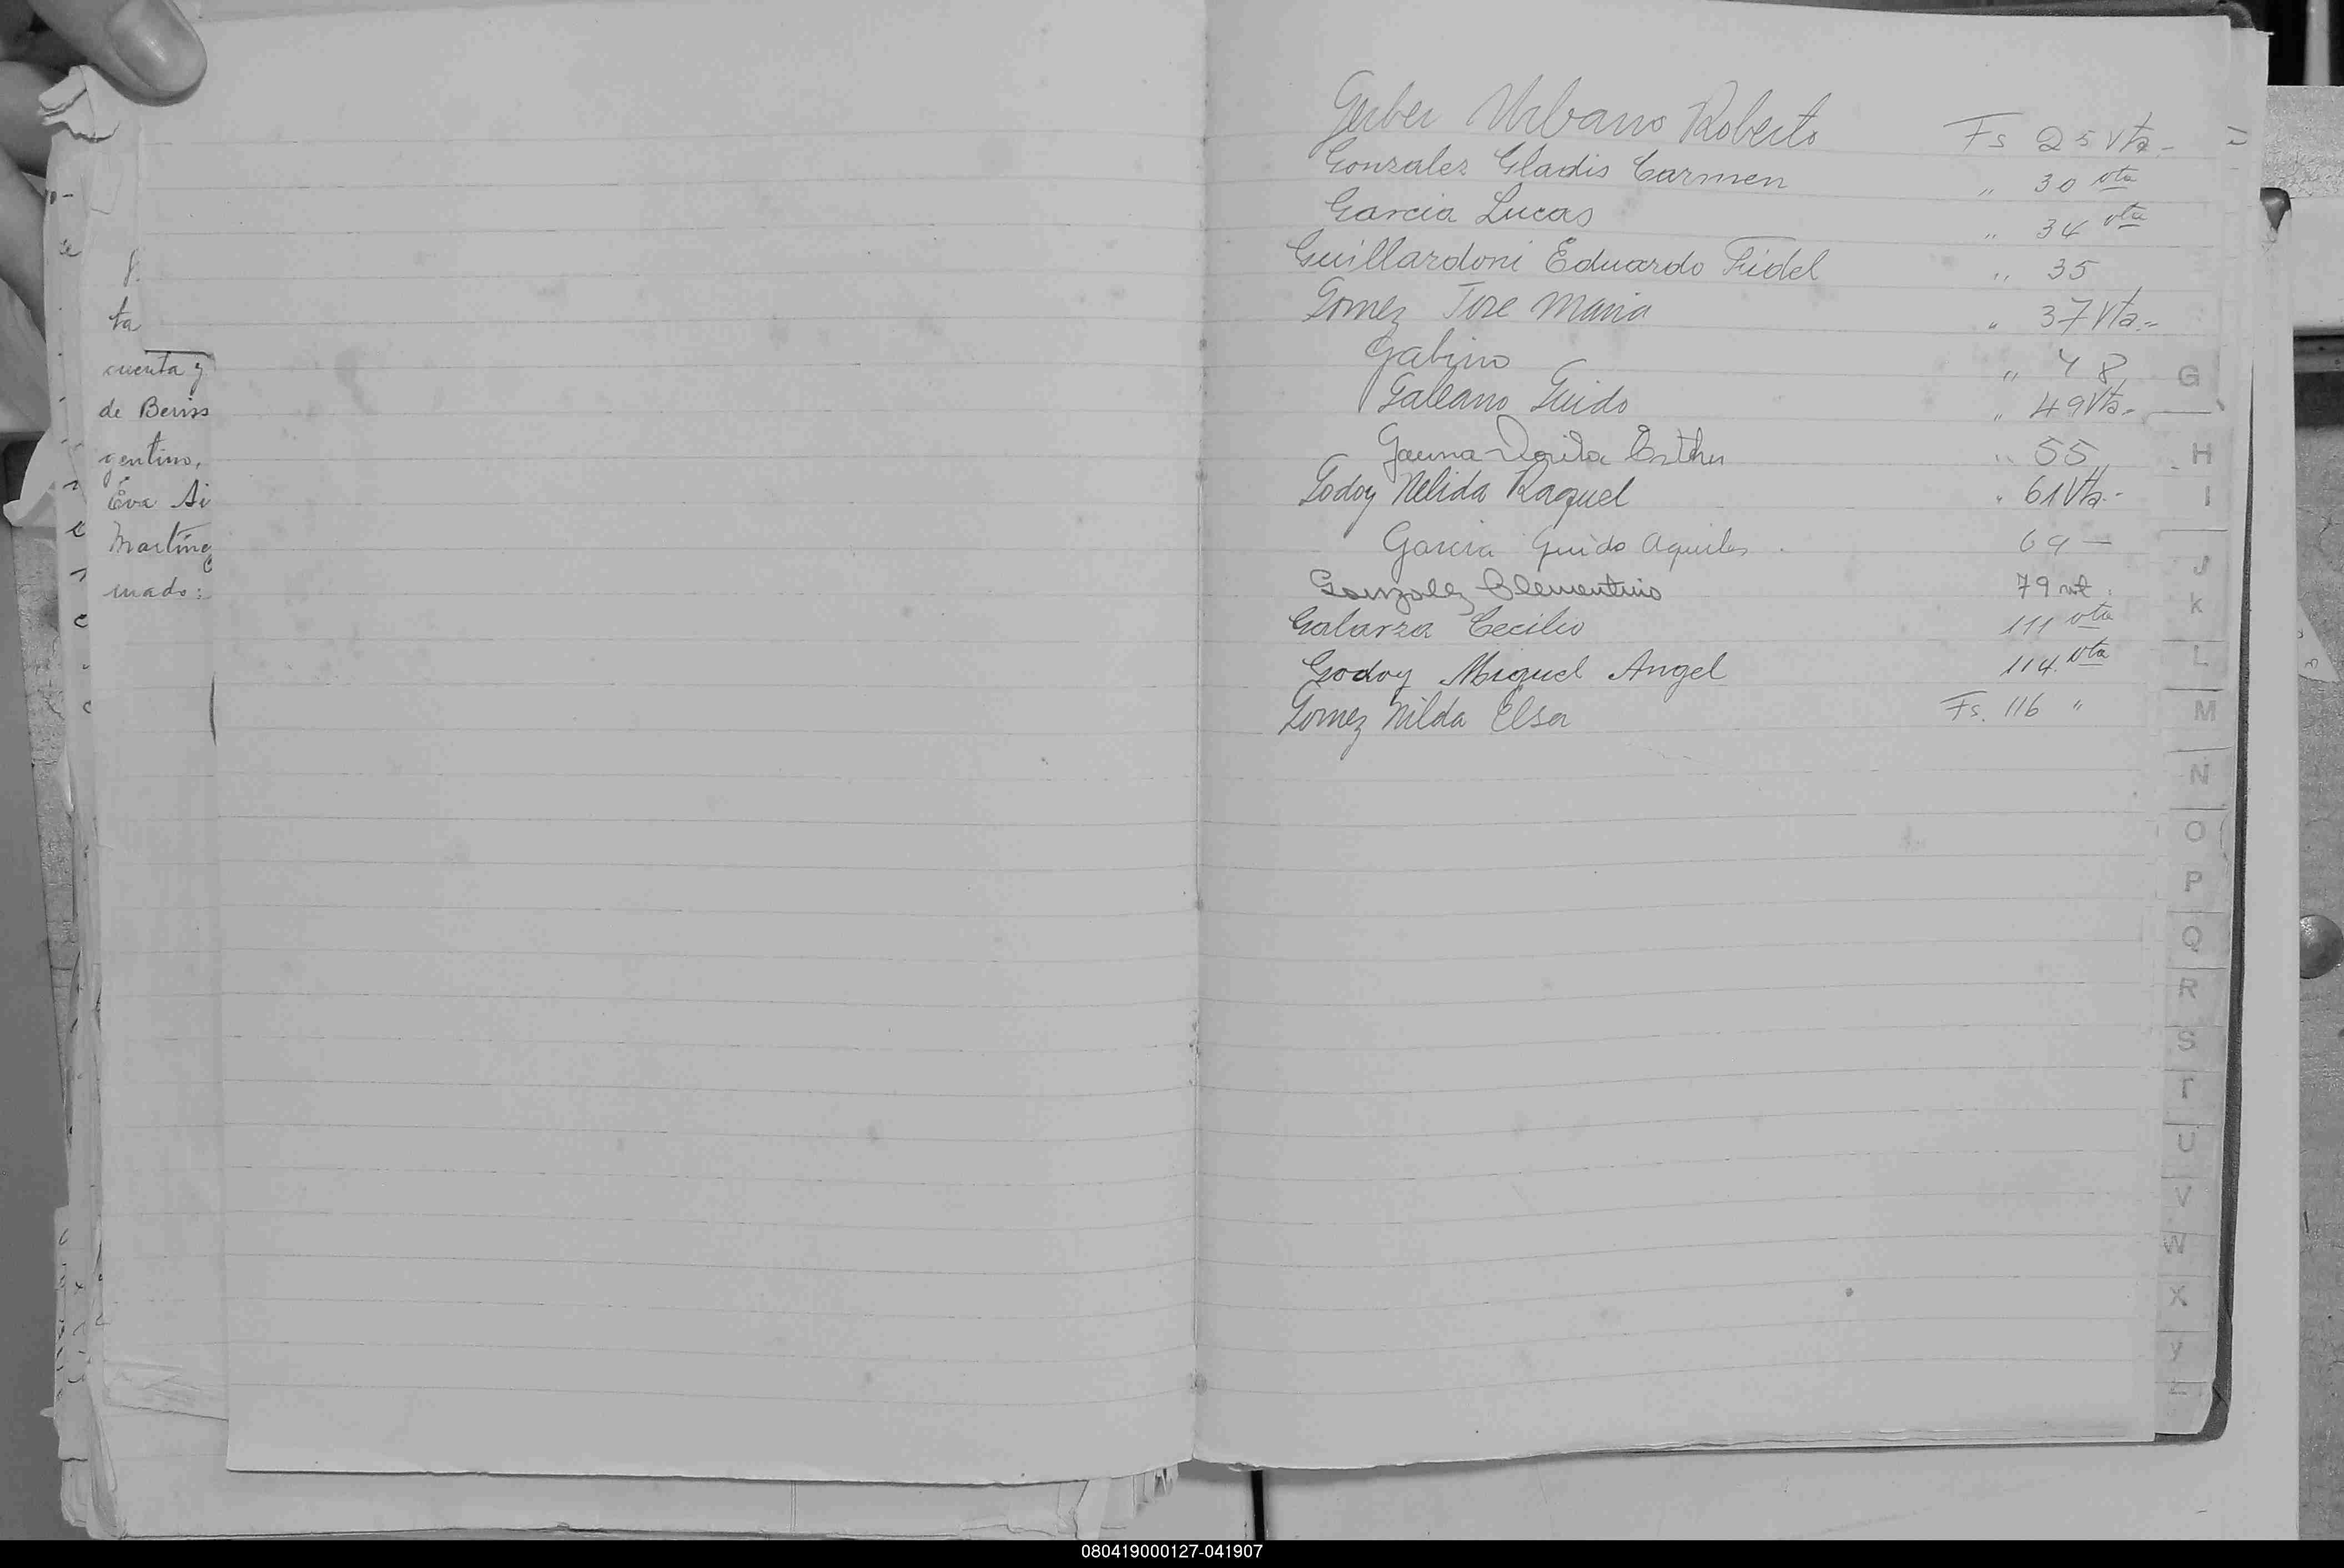 ta
cuenta y
de Beriss
gentino,
Eva Si
Martíne
mado:
Gerber Urbano Roberto Fs 25 Vta.
Gonzalez Gladis Carmen " 30 vta
Garcia Lucas " 34 vta
Guillardoni Eduardo Fidel " 35
Gomez Jose Maria " 37 Vta.-
Gabino " 48
Galeano Guido " 49 Vta.-
Gauna Dorila Esther " 55
Godoy Nelida Raquel " 61 Vta.-
Garcia Guido Aquiles . 69 —
Gonzalez Clementino 79 vt.
Galarza Cecilio 111 vta
Godoy Miguel Angel 114. vta
Gomez Nilda Elsa Fs. 116 "
G
H
I
J
K
L
M
N
O
P
Q
R
S
T
U
V
W
X
y
Z
080419000127-041907